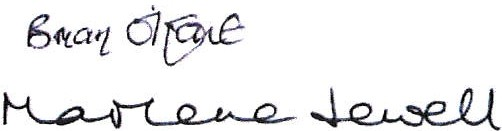 Brian O'Kane
Marlene Jewell